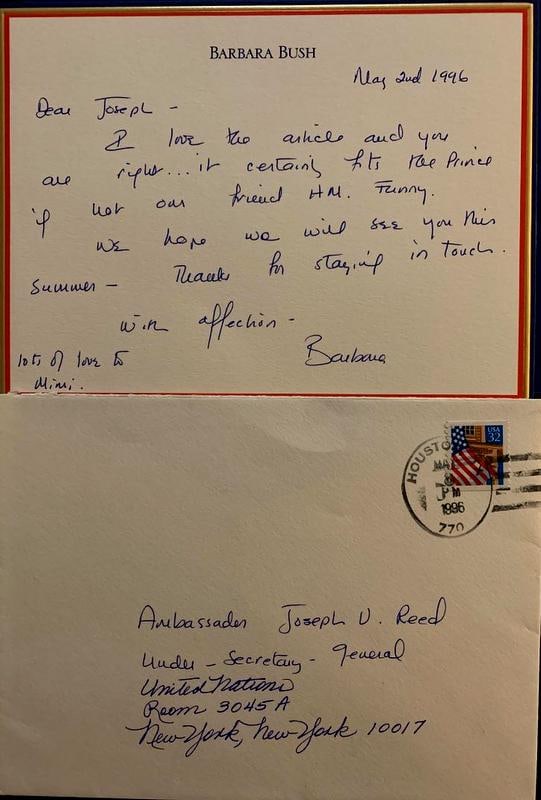 BARBARA BUSH
May 2nd 1996
Dear Joseph -
I love the article and you
are right... it certainly fits the Prince
if not our friend HM. Funny.
We hope we will see you this
summer - Thanks for staying in touch.
with affection -
Barbara
lots of love to
Mimi.
USA
32
HOUSTO
MA
PM
1996
770
Ambassador Joseph V. Reed
Under-Secretary-General
United Nations
Room 3045A
New York, New York 10017